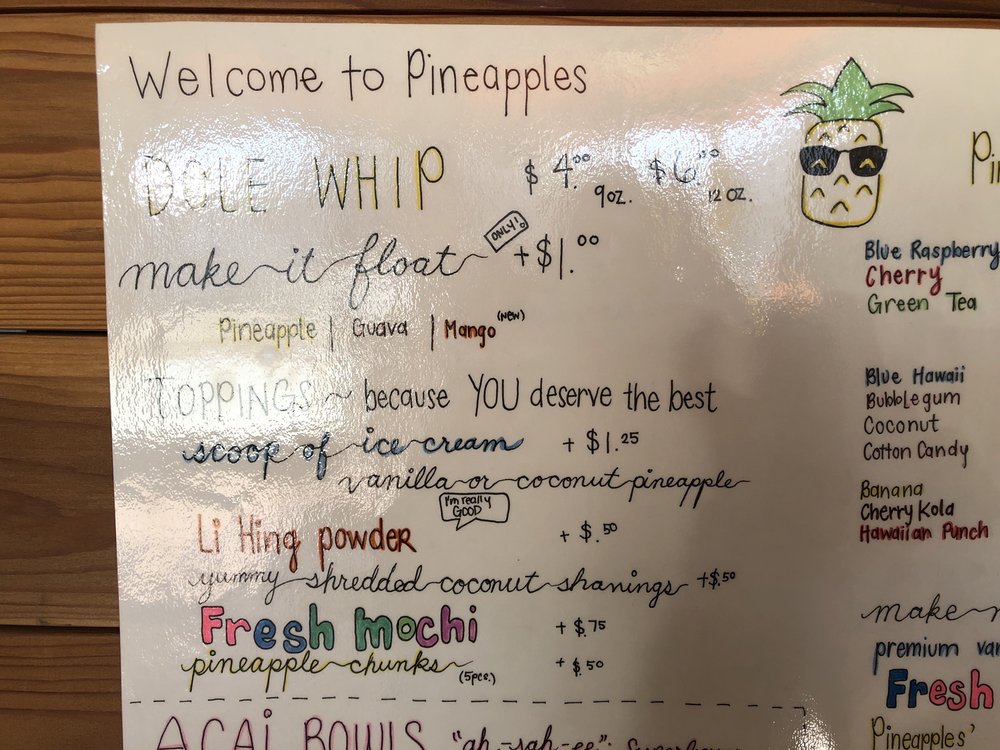 Welcome to Pineapples
DOLE WHIP $4.00 9oz. $6.00 12 oz.
make it float ONLY! +$1.00
Pineapple | Guava | Mango (NEW)
TOPPINGS ~ because YOU deserve the best
scoop of ice cream + $1.25
vanilla or coconut pineapple
I'm really GOOD
Li Hing powder + $.50
yummy shredded coconut shavings +$.50
Fresh mochi + $.75
pineapple chunks (5pcs.) + $.50
ACAi BOWLS "ah-sah-ee":
Blue Raspberry
Cherry
Green Tea
Blue Hawaii
Bubblegum
Coconut
Cotton Candy
Banana
Cherry Kola
Hawaiian Punch
make
premium
Fresh
Pineapples'